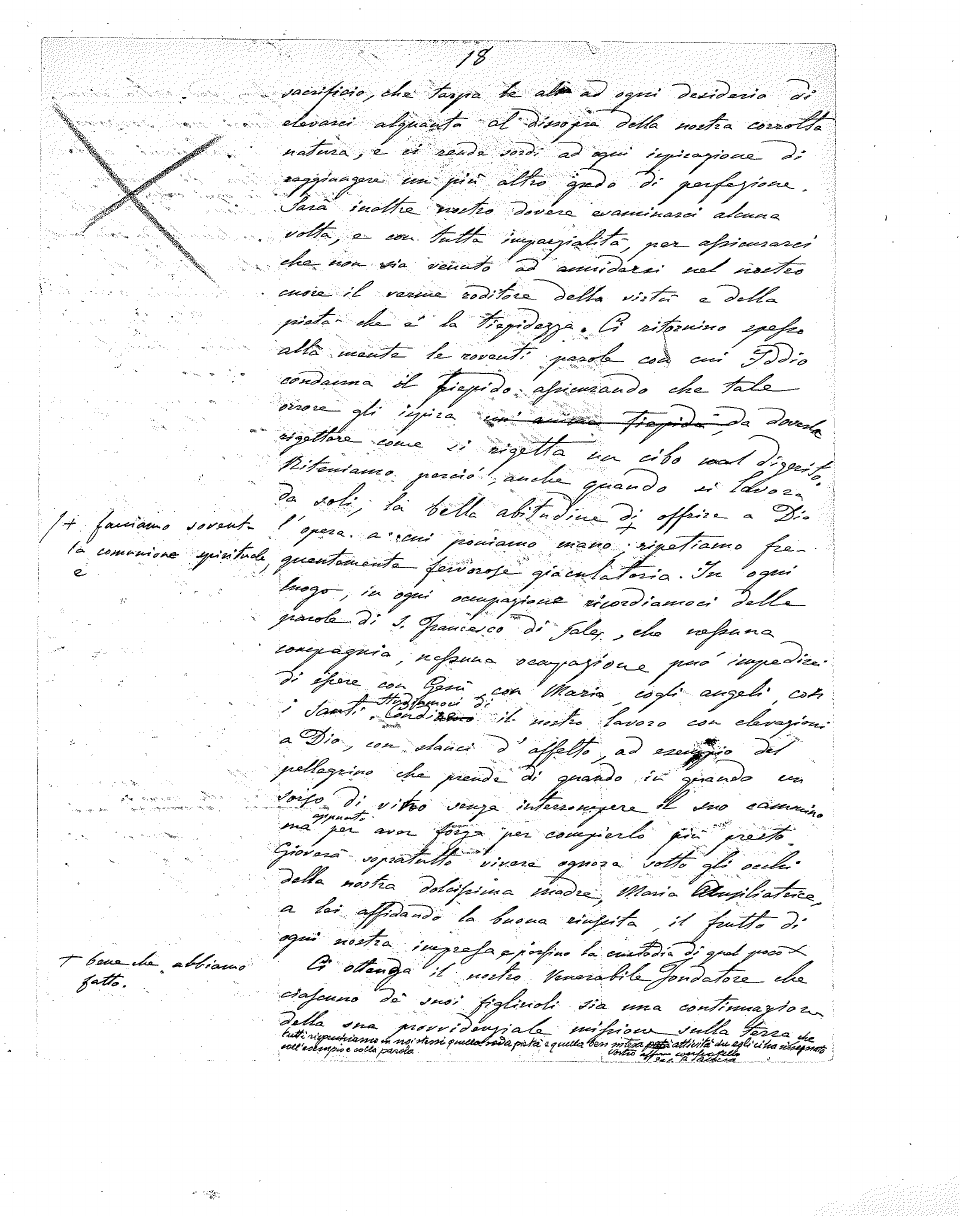 18
sacrificio, che tarpa le ali ad ogni desiderio di
elevarci alquanto al dissopra della nostra corrotta
natura, e ci rende sordi ad ogni ispirazione di
raggiungere un più altro grado di perfezione.
Sarà inoltre nostro dovere esaminarci alcuna
volta, e con tutta imparzialità, per assicurarci
che non sia venuto ad annidarsi nel nostro
cuore il verme roditore della virtù e della
pietà che è la tiepidezza. Ci ritornino spesso
alla mente le roventi parole con cui Iddio
condanna il tiepido assicurando che tale
orrore gli ispira un' anima tiepida da doverla
rigettare come si rigetta un cibo mal digerito.
Riteniamo perciò, anche quando si lavora
da soli, la bella abitudine di offrire a Dio
/+ facciamo sovente
la comunione spirituale,
e
l'opera a cui poniamo mano; + ripetiamo fre-
quentemente fervorose giaculatoria. In ogni
luogo, in ogni occupazione ricordiamoci delle
parole di S. Francesco di Sales, che nessuna
compagnia, nessuna occupazione può impedirci
di essere con Gesù, con Maria, cogli angeli, con
i Santi. Studiamoci di condire il nostro lavoro con elevazioni
a Dio, con slanci d'affetto, ad esempio del
pellegrino che prende di quando in quando un
sorso di vino senza interrompere il suo cammino
ma appunto per aver forza per compierlo più presto.
Gioverà sopratutto vivere ognora sotto gli occhi
della nostra dolcissima madre, Maria Ausiliatrice,
a lei affidando la buona riuscita, il frutto di
ogni nostra impresa e persino la custodia di quel poco +
+ bene che abbiamo
fatto.
Ci ottenga il nostro Venerabile Fondatore che
ciascuno de' suoi figliuoli sia una continuazione
della sua provvidenziale missione sulla terra, che
tutti in noi stessi quella soda pietà e quella ben intesa attività che egli ci ha insegnato
coll'esempio e colla parola
Vostro aff.mo confratello